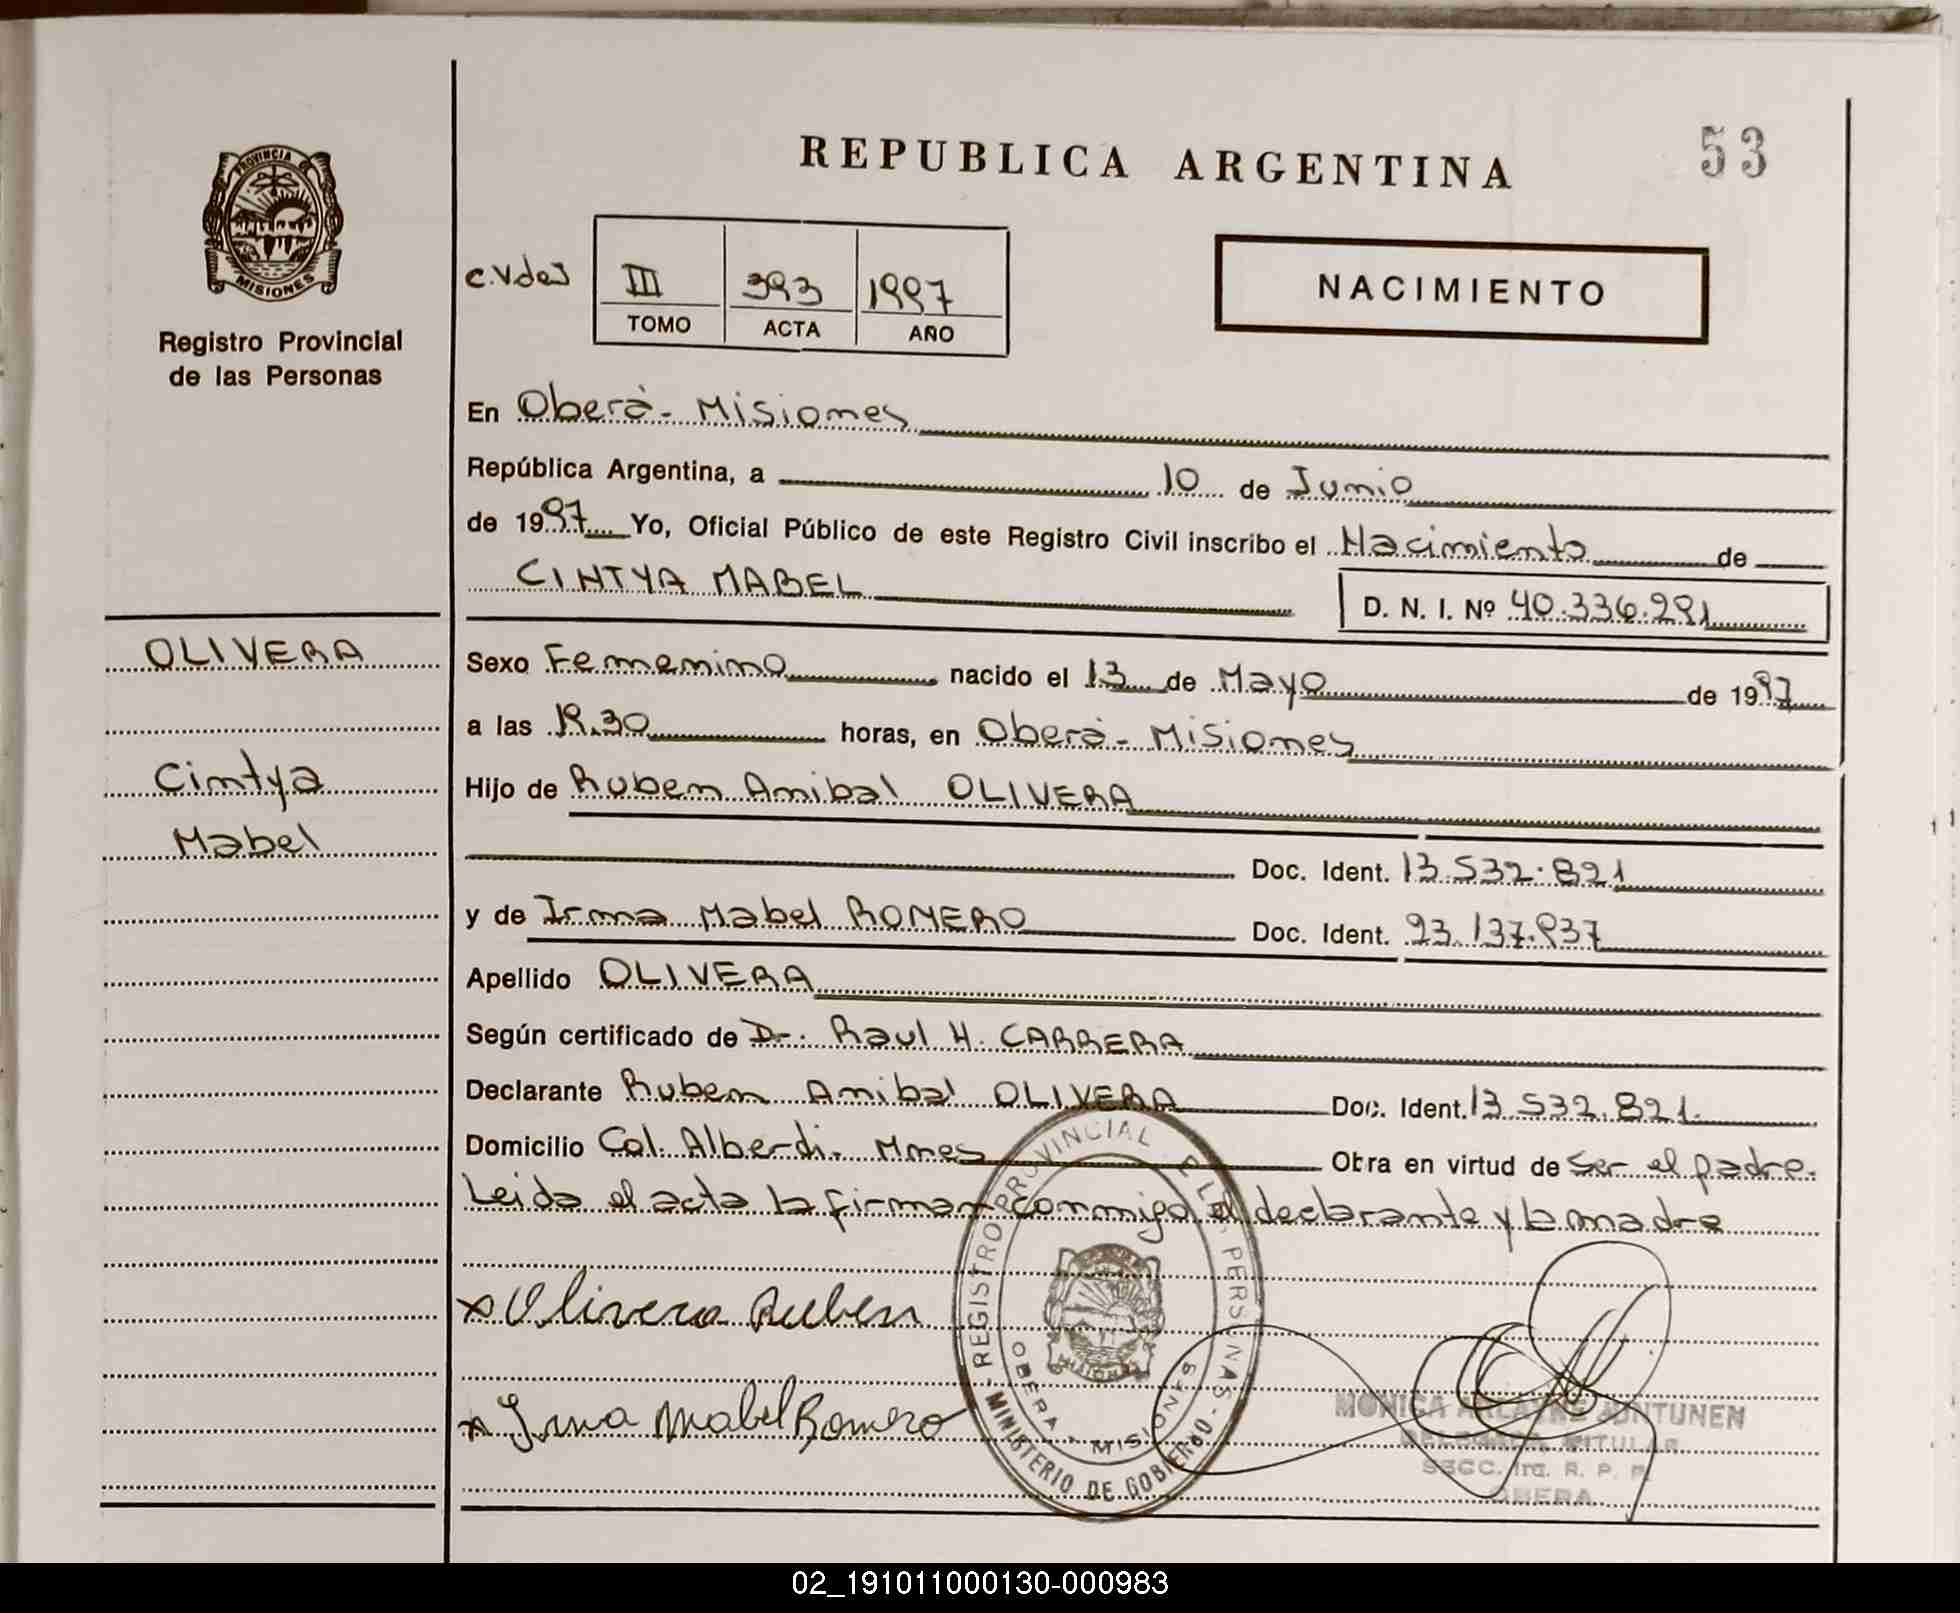 REPUBLICA ARGENTINA
53
PROVINCIA DE
MISIONES
Registro Provincial
de las Personas
III 393 1997
TOMO ACTA AÑO
NACIMIENTO
En Oberá- Misiones
República Argentina, a 10 de Junio
de 1997 Yo, Oficial Público de este Registro Civil inscribo el Nacimiento de
CINTYA MABEL
D. N. I. Nº 40.336.291
OLIVERA
Cintya
Mabel
Sexo Femenino nacido el 13 de Mayo de 1997
a las 19.30 horas, en Oberá- Misiones
Hijo de Ruben Anibal OLIVERA
Doc. Ident. 13.532.821
y de Irma Mabel ROMERO Doc. Ident. 93.137.937
Apellido OLIVERA
Según certificado de Dr. Raul H. CARRERA
Declarante Ruben Anibal OLIVERA Doc. Ident. 13.532.821.
Domicilio Col. Alberdi. Mnes Obra en virtud de ser el padre.
Leida el acta la firman conmigo el declarante y la madre
x Olivera Ruben
x Irma Mabel Romero
REGISTRO PROVINCIAL DE LAS PERSONAS
MINISTERIO DE GOBIERNO
OBERA - MISIONES
MONICA JUNTUNEN
DELEGADA TITULAR
SSCC. 1ra. R. P. P.
OBERA
02_191011000130-000983